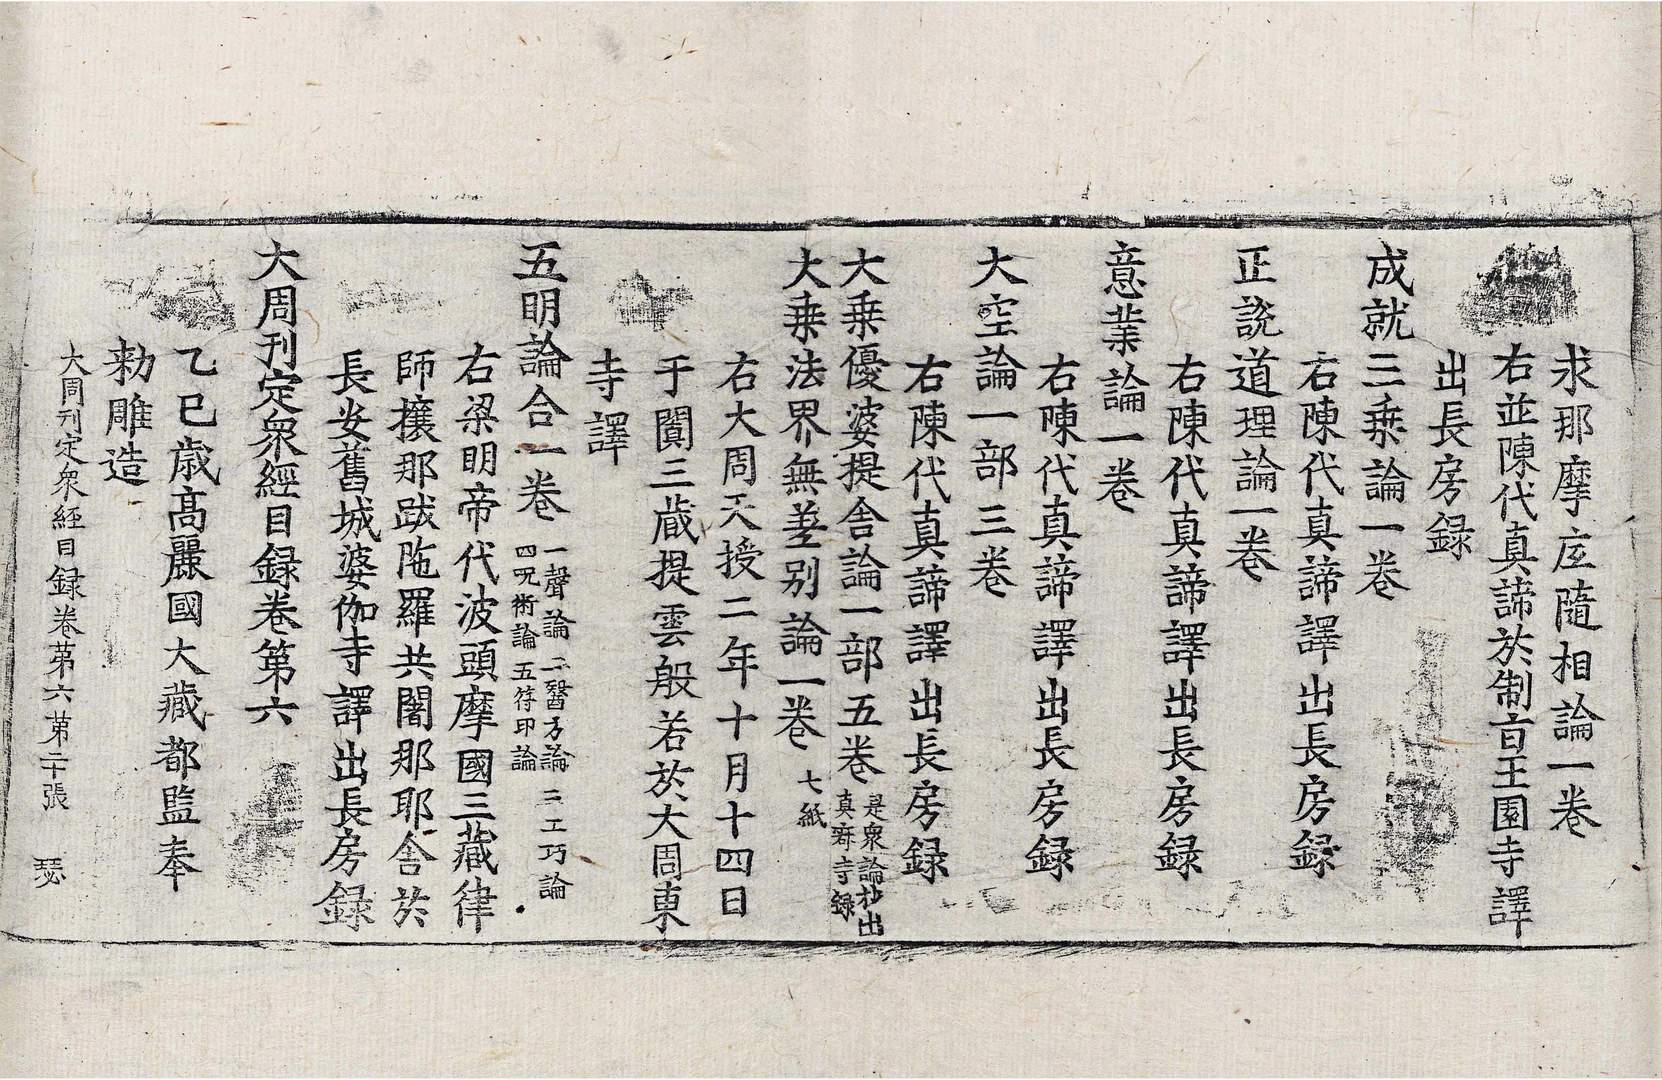 求那摩底隨相論一卷
右並陳代真諦於制旨王園寺譯
出長房録
成就三乗論一卷
右陳代真諦譯出長房録
正說道理論一卷
右陳代真諦譯出長房録
意業論一卷
右陳代真諦譯出長房録
大空論一部三卷
右陳代真諦譯出長房録
大乗優婆提舎論一部五卷 是衆論抄出
真寂寺録
大乗法界無差别論一卷 七紙
右大周天授二年十月十四日
于闐三蔵提雲般若於大周東
寺譯
五明論合一卷 一聲論 二醫方論 三工巧論
四呪術論 五符印論
右梁明帝代波頭摩國三藏律
師攘那跋陁羅共闍那耶舎於
長安舊城婆伽寺譯出長房録
大周刊定衆經目録卷第六
乙巳歳髙麗國大藏都監奉
勅雕造
大周刊定衆經目録卷第六 第二十張 瑟